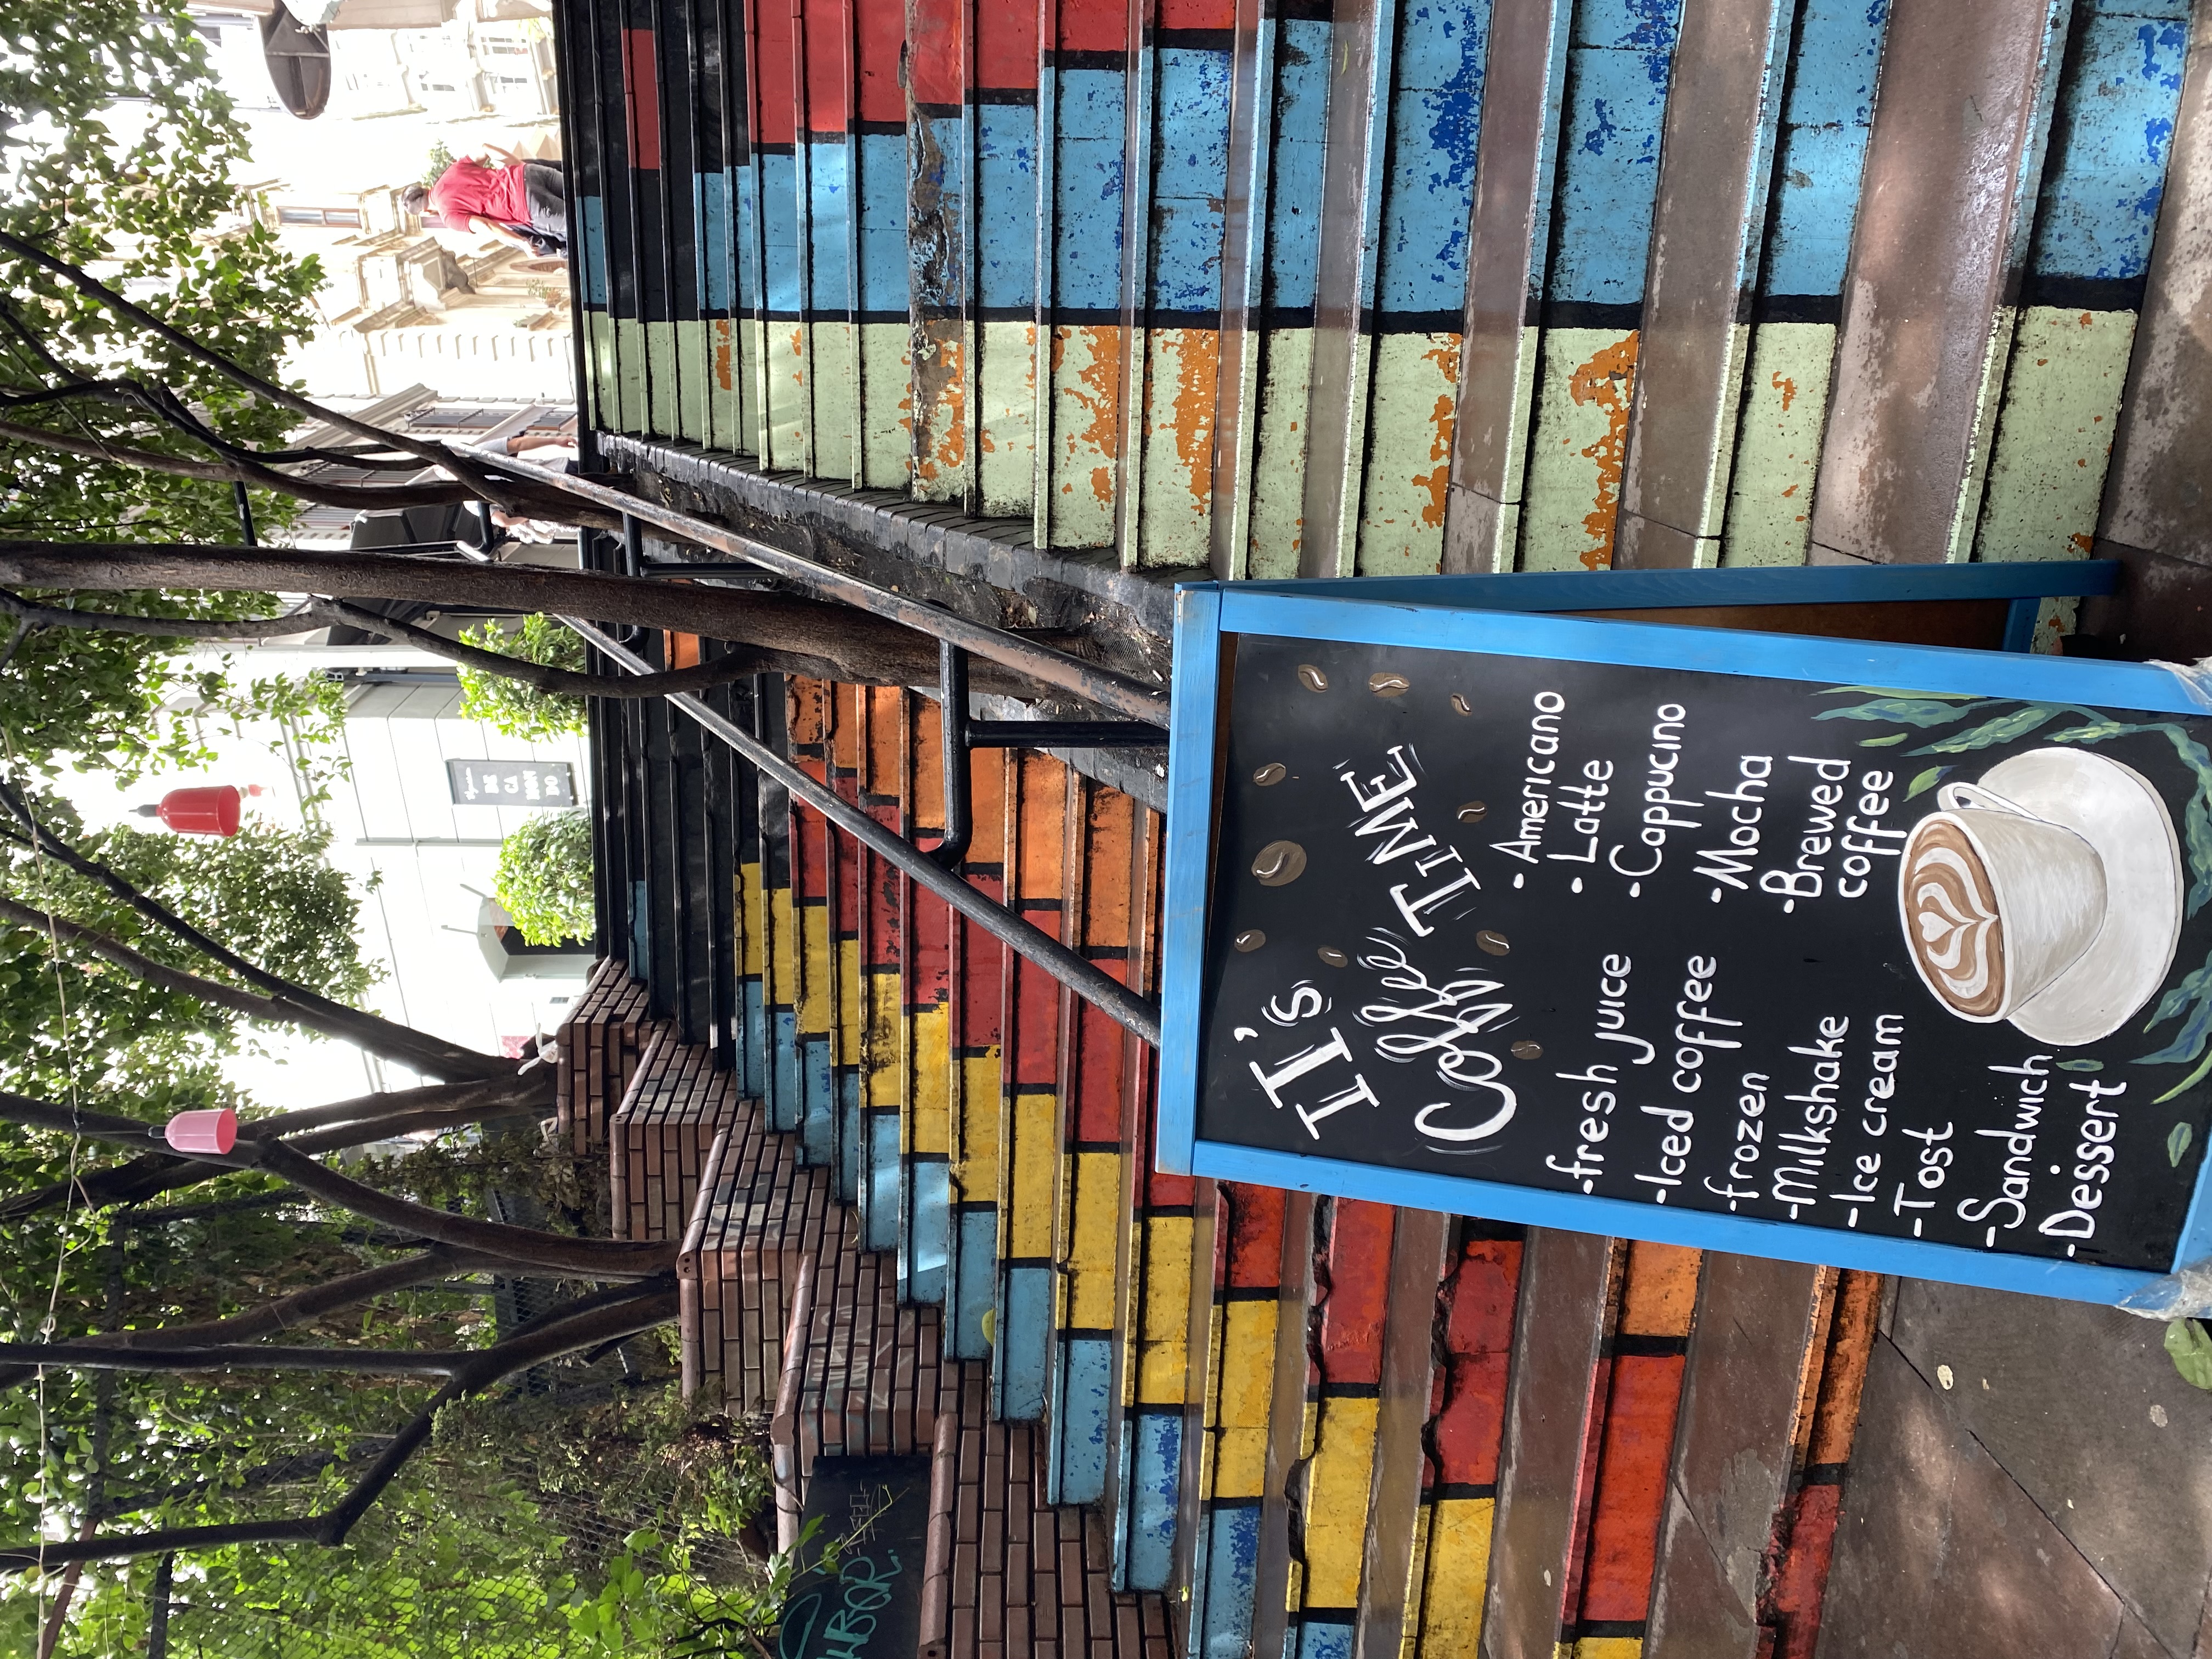 DE
CA
MON
DO
IT's
Coffee TIME
-fresh juice
-Iced coffee
-frozen
-Milkshake
-Ice cream
-Tost
-Sandwich
-Dessert
-Americano
-Latte
-Cappucino
-Mocha
-Brewed
coffee